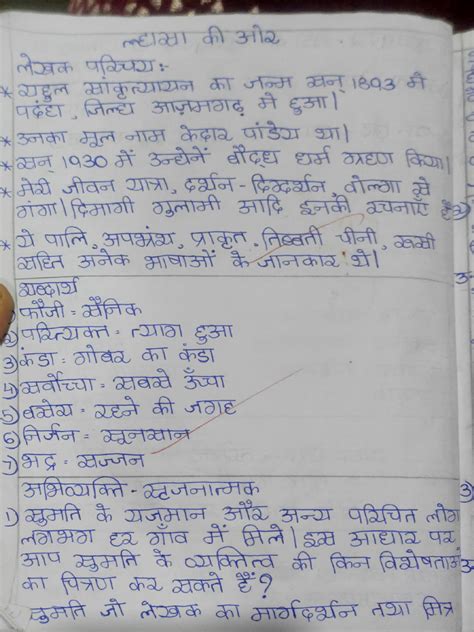 ल्हासा की ओर
लेखक परिचय:-
* राहुल सांकृत्यायन का जन्म सन् 1893 में
पदंहा, जिल्य आज़मगढ़ मे हुआ।
* उनका मूल नाम केदार पांडेय था।
* सन् 1930 में उन्होनें बौद्ध धर्म ग्रहण किया।
* मेरी जीवन यात्रा, दर्शन-दिग्दर्शन, वोल्गा से
गंगा। दिमागी गुलामी आदि इनकी रचनाएँ
* ये पालि, अपभ्रंश, प्राकृत, तिब्बती चीनी,
सहित अनेक भाषाओं के जानकार थे।
शब्दार्थ
फौजी = सैनिक
2) परित्यक्त = त्याग हुआ
3) कंडा = गोबर का कंडा
4) सर्वोच्चा = सबसे ऊँचा
5) बसेरा = रहने की जगह
6) निर्जन = सूनसान
7) भद्र = सज्जन
अभिव्यक्ति - सृजनात्मक
1) सुमति के यजमान और अन्य परिचित लोग
लगभग हर गाँव में मिले। इस आधार पर
आप सुमति के व्यक्तित्व की किन विशेषताओं
का चित्रण कर सकते हैं?
सुमति जो लेखक का मार्गदर्शन तथा मित्र